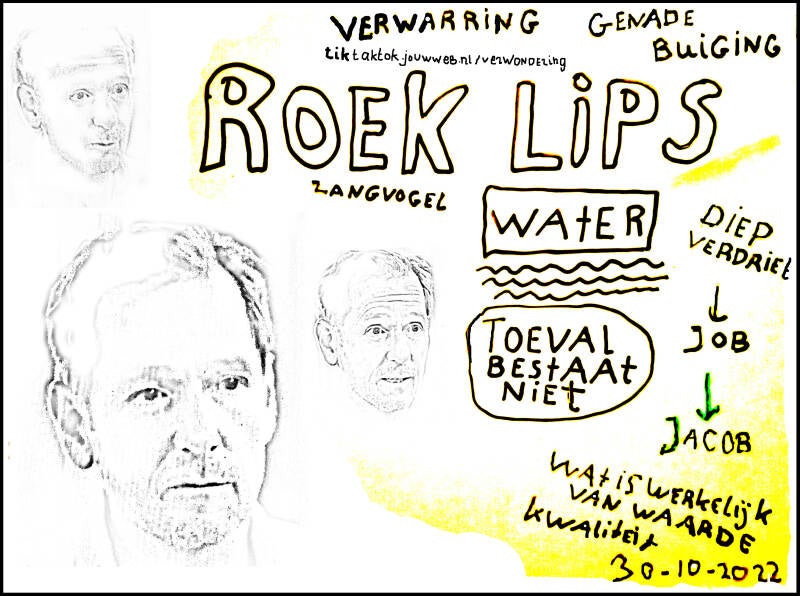 VERWARRING
GENADE
BUiGiNG
tiktaktok.jouwweb.nl/verwondering
ROEK LiPS
ZANGVOGEL
WAtER
DiEP
VERDRiEt
TOEVAL
BEStAAt
NiEt
JOB
JACOB
WAt iS WERKELijK
VAN WAARDE
KWALitEit
30-10-2022